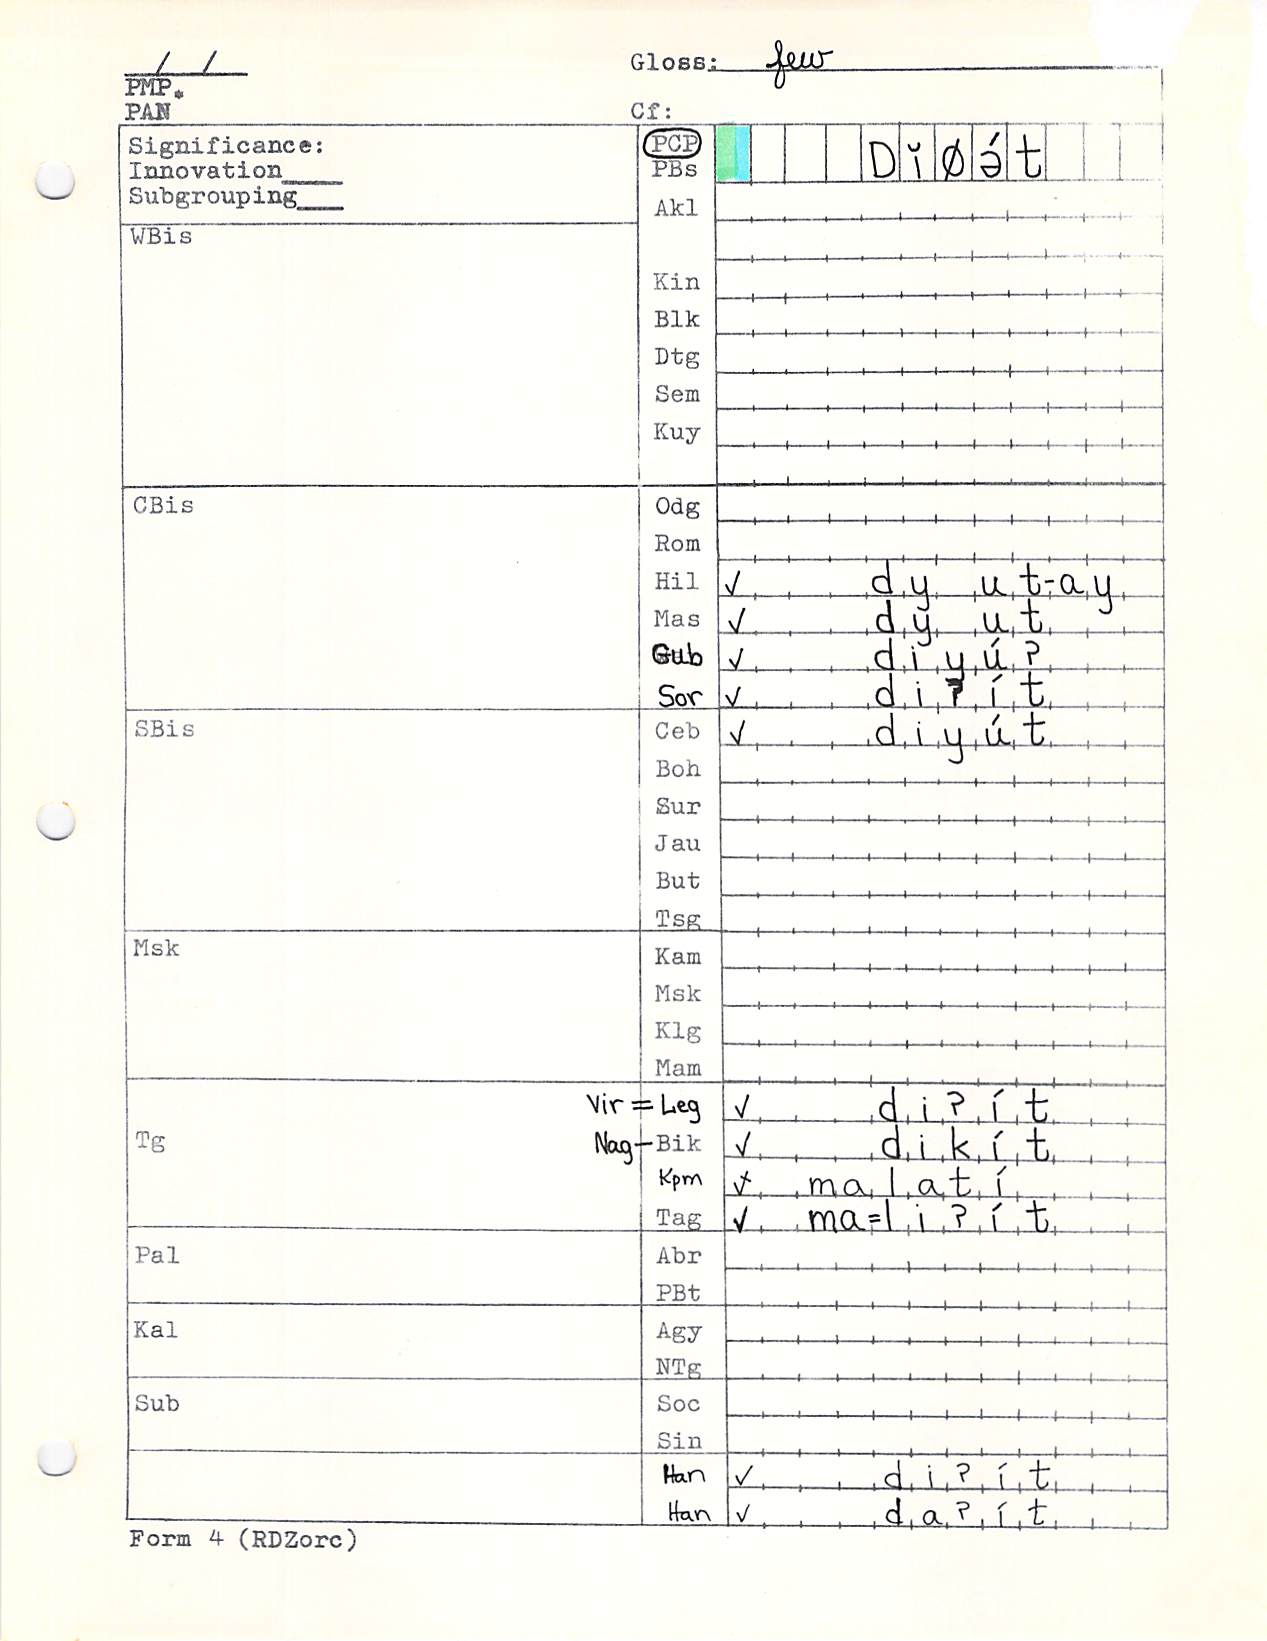 / / Gloss: few
PMP*
PAN Cf:
Significance: PCP D i Ø ə́ t
Innovation___ PBs
Subgrouping___
Akl
WBis
Kin
Blk
Dtg
Sem
Kuy
CBis Odg
Rom
Hil ✓ dy ut-ay
Mas ✓ dy ut
Gub ✓ diyúʔ
Sor ✓ diʔít
SBis Ceb ✓ diyút
Boh
Sur
Jau
But
Tsg
Msk Kam
Msk
Klg
Mam
Vir = Leg ✓ diʔít
Tg Nag - Bik ✓ dikít
Kpm malatí
Tag ✓ ma=liʔít
Pal Abr
PBt
Kal Agy
NTg
Sub Soc
Sin
Han ✓ diʔít
Han ✓ daʔít
Form 4 (RDZorc)